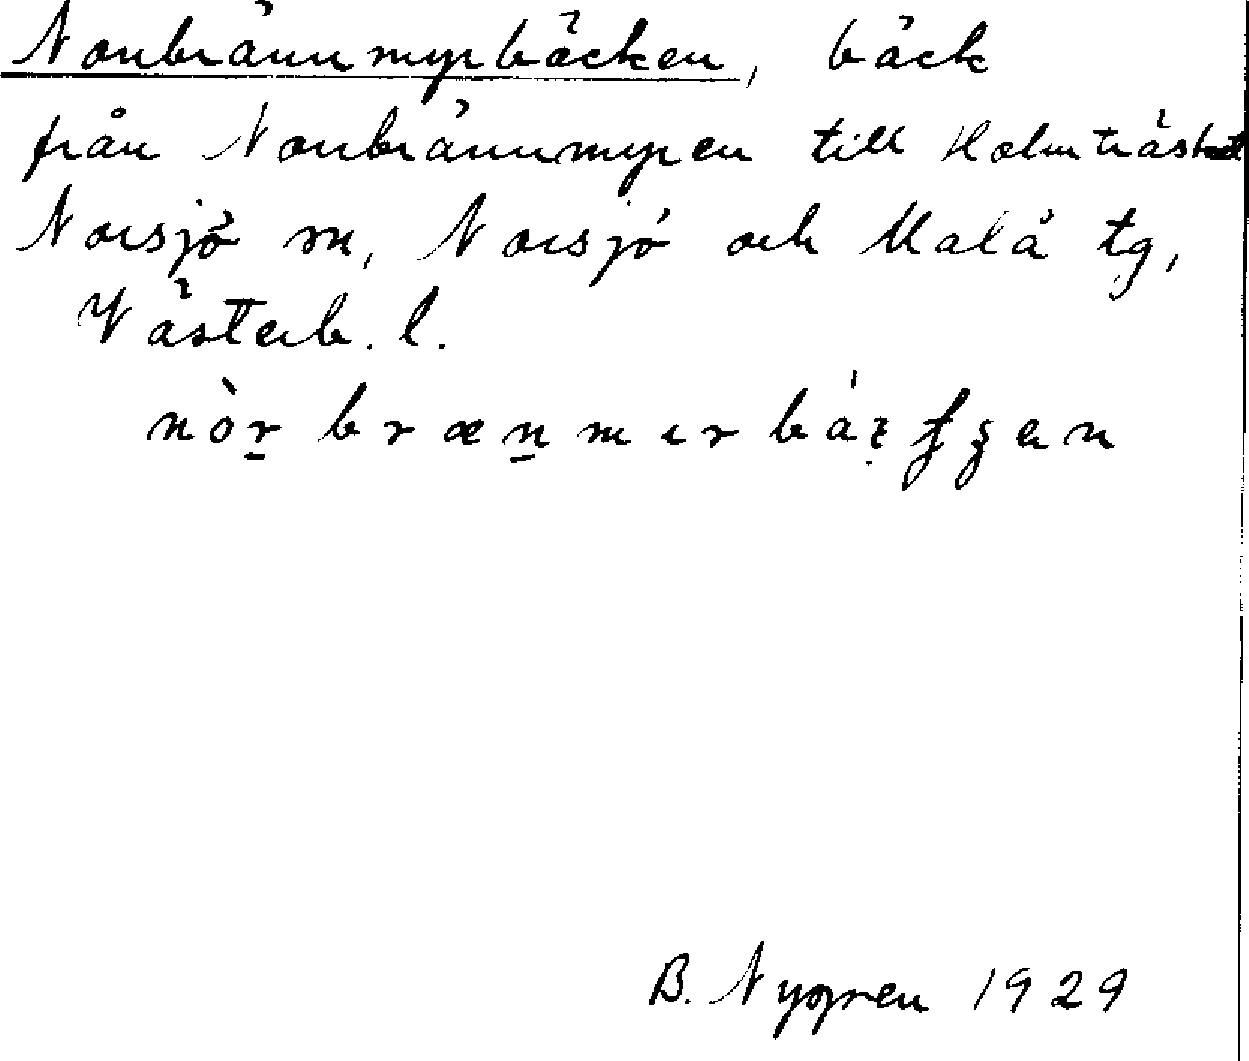 Norrbrännmyrbäcken, bäck
från Norrbrännmyren till Holmträsket
Norsjö sn, Norsjö och Malå tg,
Västerb. l.
B. Nygren 1929